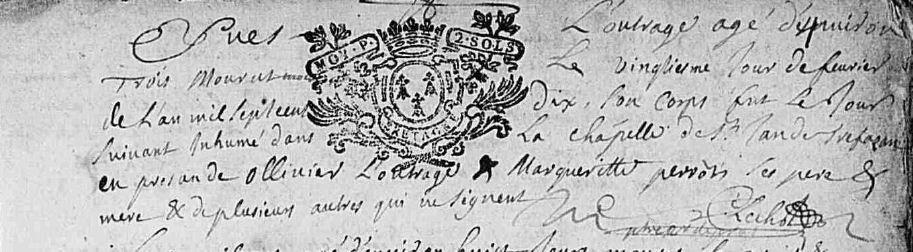 Yves L'outrage agé d'enuiron
MOY. P. 2. SOLS
BRETAGNE
Trois mourut le vingtiesme Jour de feurier
de L'an mil sept cent dix, son corps fut le Jour
suivant Inhumé dans La chapelle de St Jan de
en presan de ollivier L'outrage & Margueritte perrot ses pere &
mere & de plusieurs autres qui ne signent